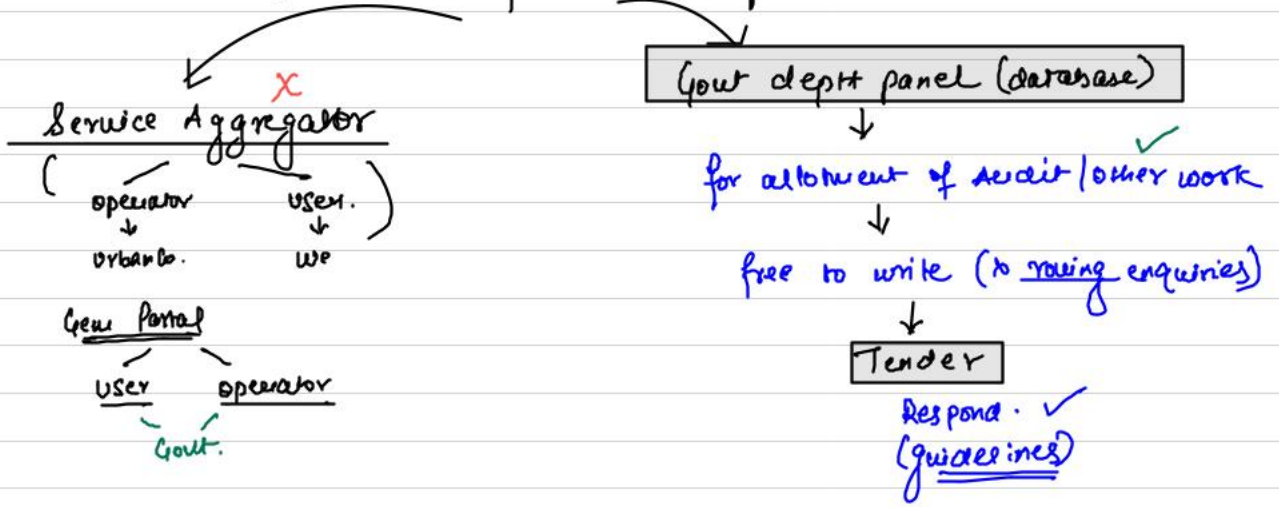 X
Service Aggregator
( operator user. )
↓ ↓
UrbanCo. We
Gem Portal
User operator
Govt.
Govt deptt panel (database)
↓
✓
for allotment of Audit / other work
↓
free to write (to roving enquiries)
↓
Tender
Respond. ✓
(guidelines)